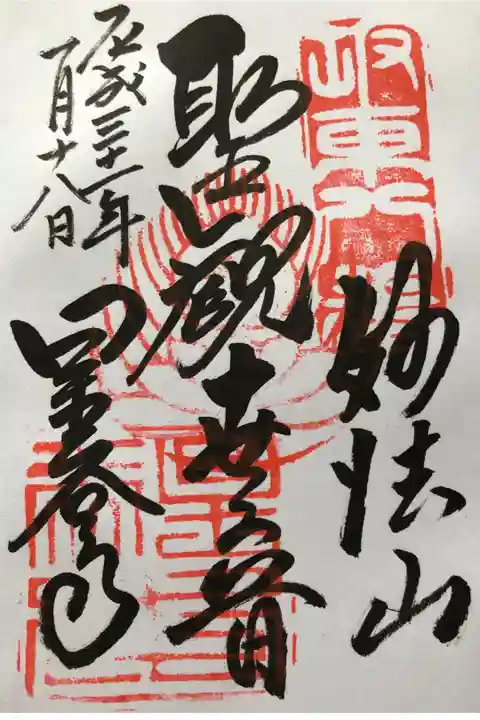 坂東八番
妙法山
聖観世音
平成三十一年
一月十八日
星谷寺